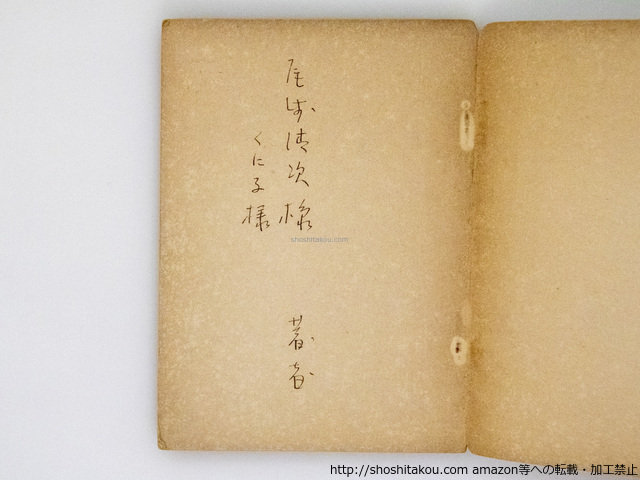 尾崎清次様
くに子様
著者
shoshitakou.com
http://shoshitakou.com amazon等への転載・加工禁止